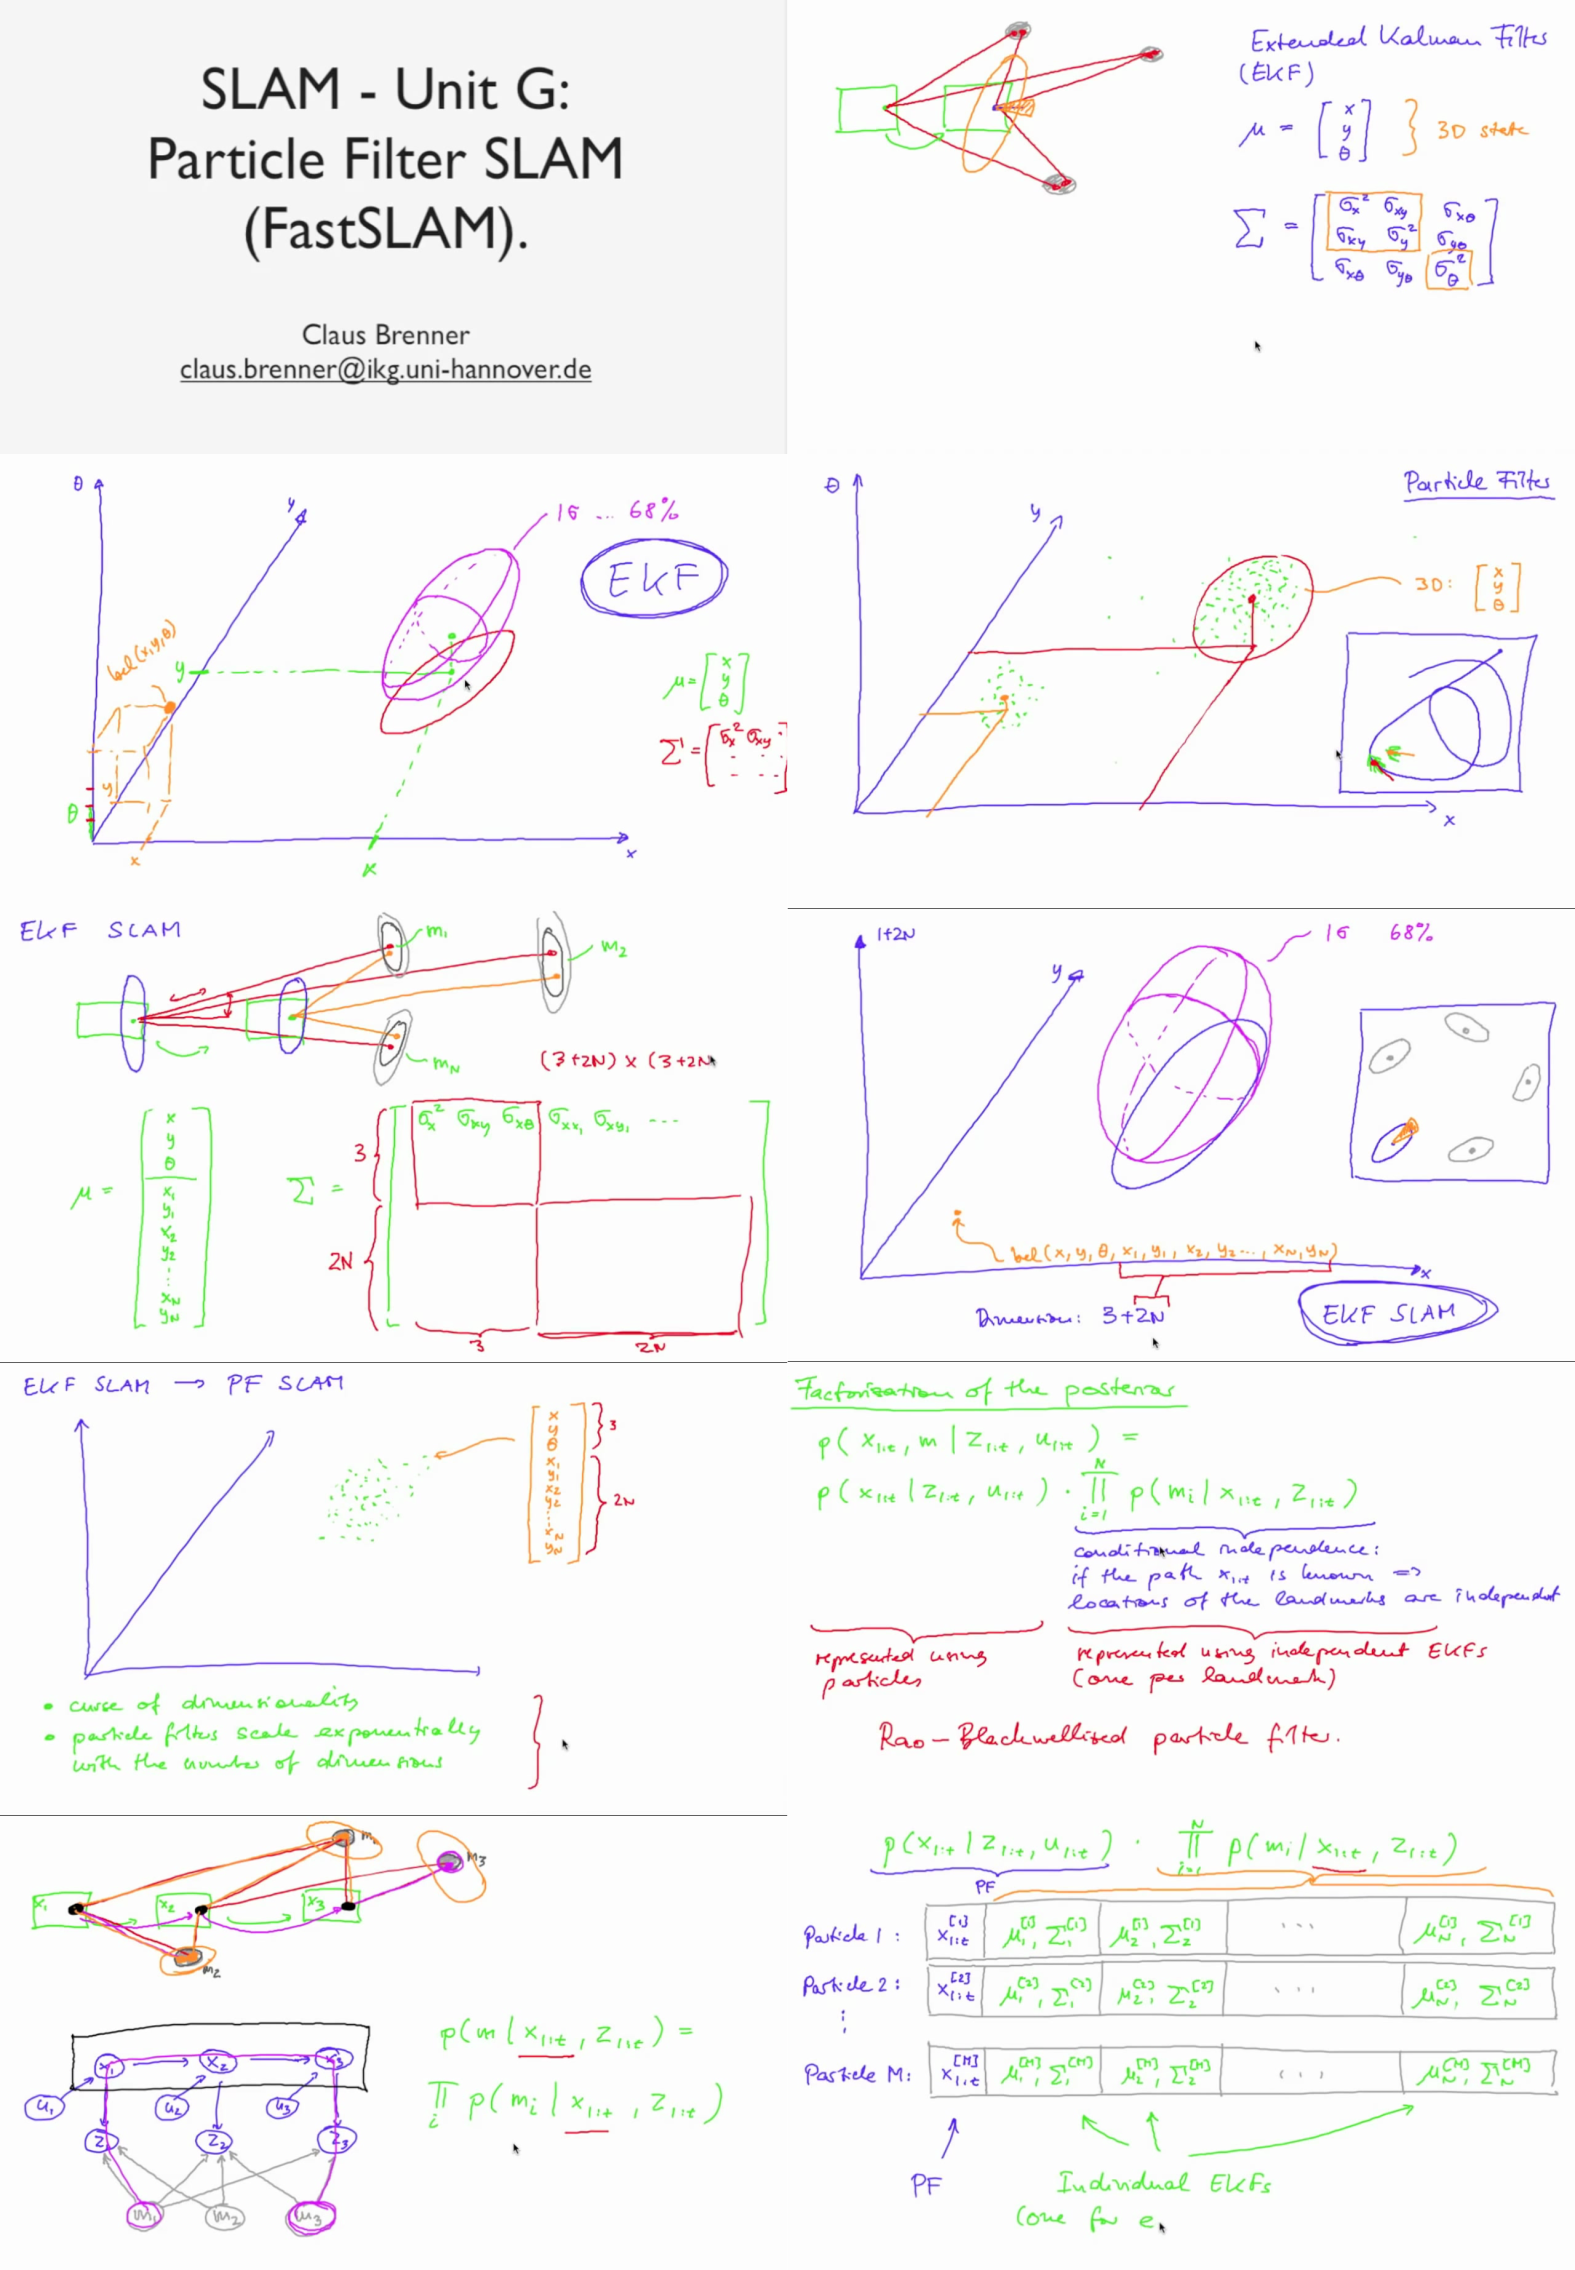 SLAM - Unit G:
Particle Filter SLAM
(FastSLAM).
Claus Brenner
claus.brenner@ikg.uni-hannover.de
Extended Kalman Filter
(EKF)
μ = [ x
y
θ ] } 3D state
Σ = [ σx² σxy σxθ
σxy σy² σyθ
σxθ σyθ σθ² ]
θ
y
1σ ... 68%
EKF
bel(x,y,θ)
y
μ = [ x
y
θ ]
Σ = [ σx² σxy .
y
θ
x
x
x
Particle Filter
θ
y
3D: [ x
y
θ ]
x
EKF SLAM
m1
m2
mN
(3+2N) x (3+2N
μ = [ x
y
θ
x1
y1
x2
y2
⋮
xN
yN ]
Σ = [ σx² σxy σxθ σxx1 σxy1 ... ]
3
2N
3
2N
1+2N
y
1σ 68%
bel(x, y, θ, x1, y1, x2, y2 ..., xN, yN)
x
Dimension: 3+2N
EKF SLAM
EKF SLAM → PF SLAM
[ x
y
θ ] } 3
x1
y1
x2
y2
⋮
xN
yN } 2N
• curse of dimensionality
• particle filters scale exponentially
with the number of dimensions
Factorization of the posterior
p( x1:t, m | z1:t, u1:t ) =
p( x1:t | z1:t, u1:t ) · ∏ i=1 N p( mi | x1:t, z1:t )
conditional independence:
if the path x1:t is known =>
locations of the landmarks are independent
represented using
particles
represented using independent EKFs
(one per landmark)
Rao-Blackwellized particle filter.
m1
m3
x1
x2
x3
m2
x1 x2 x3
u1 u2 u3
z1 z2 z3
m1 m2 m3
p(m | x1:t, z1:t) =
∏ i p(mi | x1:t, z1:t)
p(x1:t | z1:t, u1:t) · ∏ i=1 N p(mi | x1:t, z1:t)
PF
Particle 1: x1:t[1] μ1[1], Σ1[1] μ2[1], Σ2[1] ... μN[1], ΣN[1]
Particle 2: x1:t[2] μ1[2], Σ1[2] μ2[2], Σ2[2] ... μN[2], ΣN[2]
⋮
Particle M: x1:t[M] μ1[M], Σ1[M] μ2[M], Σ2[M] ... μN[M], ΣN[M]
PF
Individual EKFs
(one for e